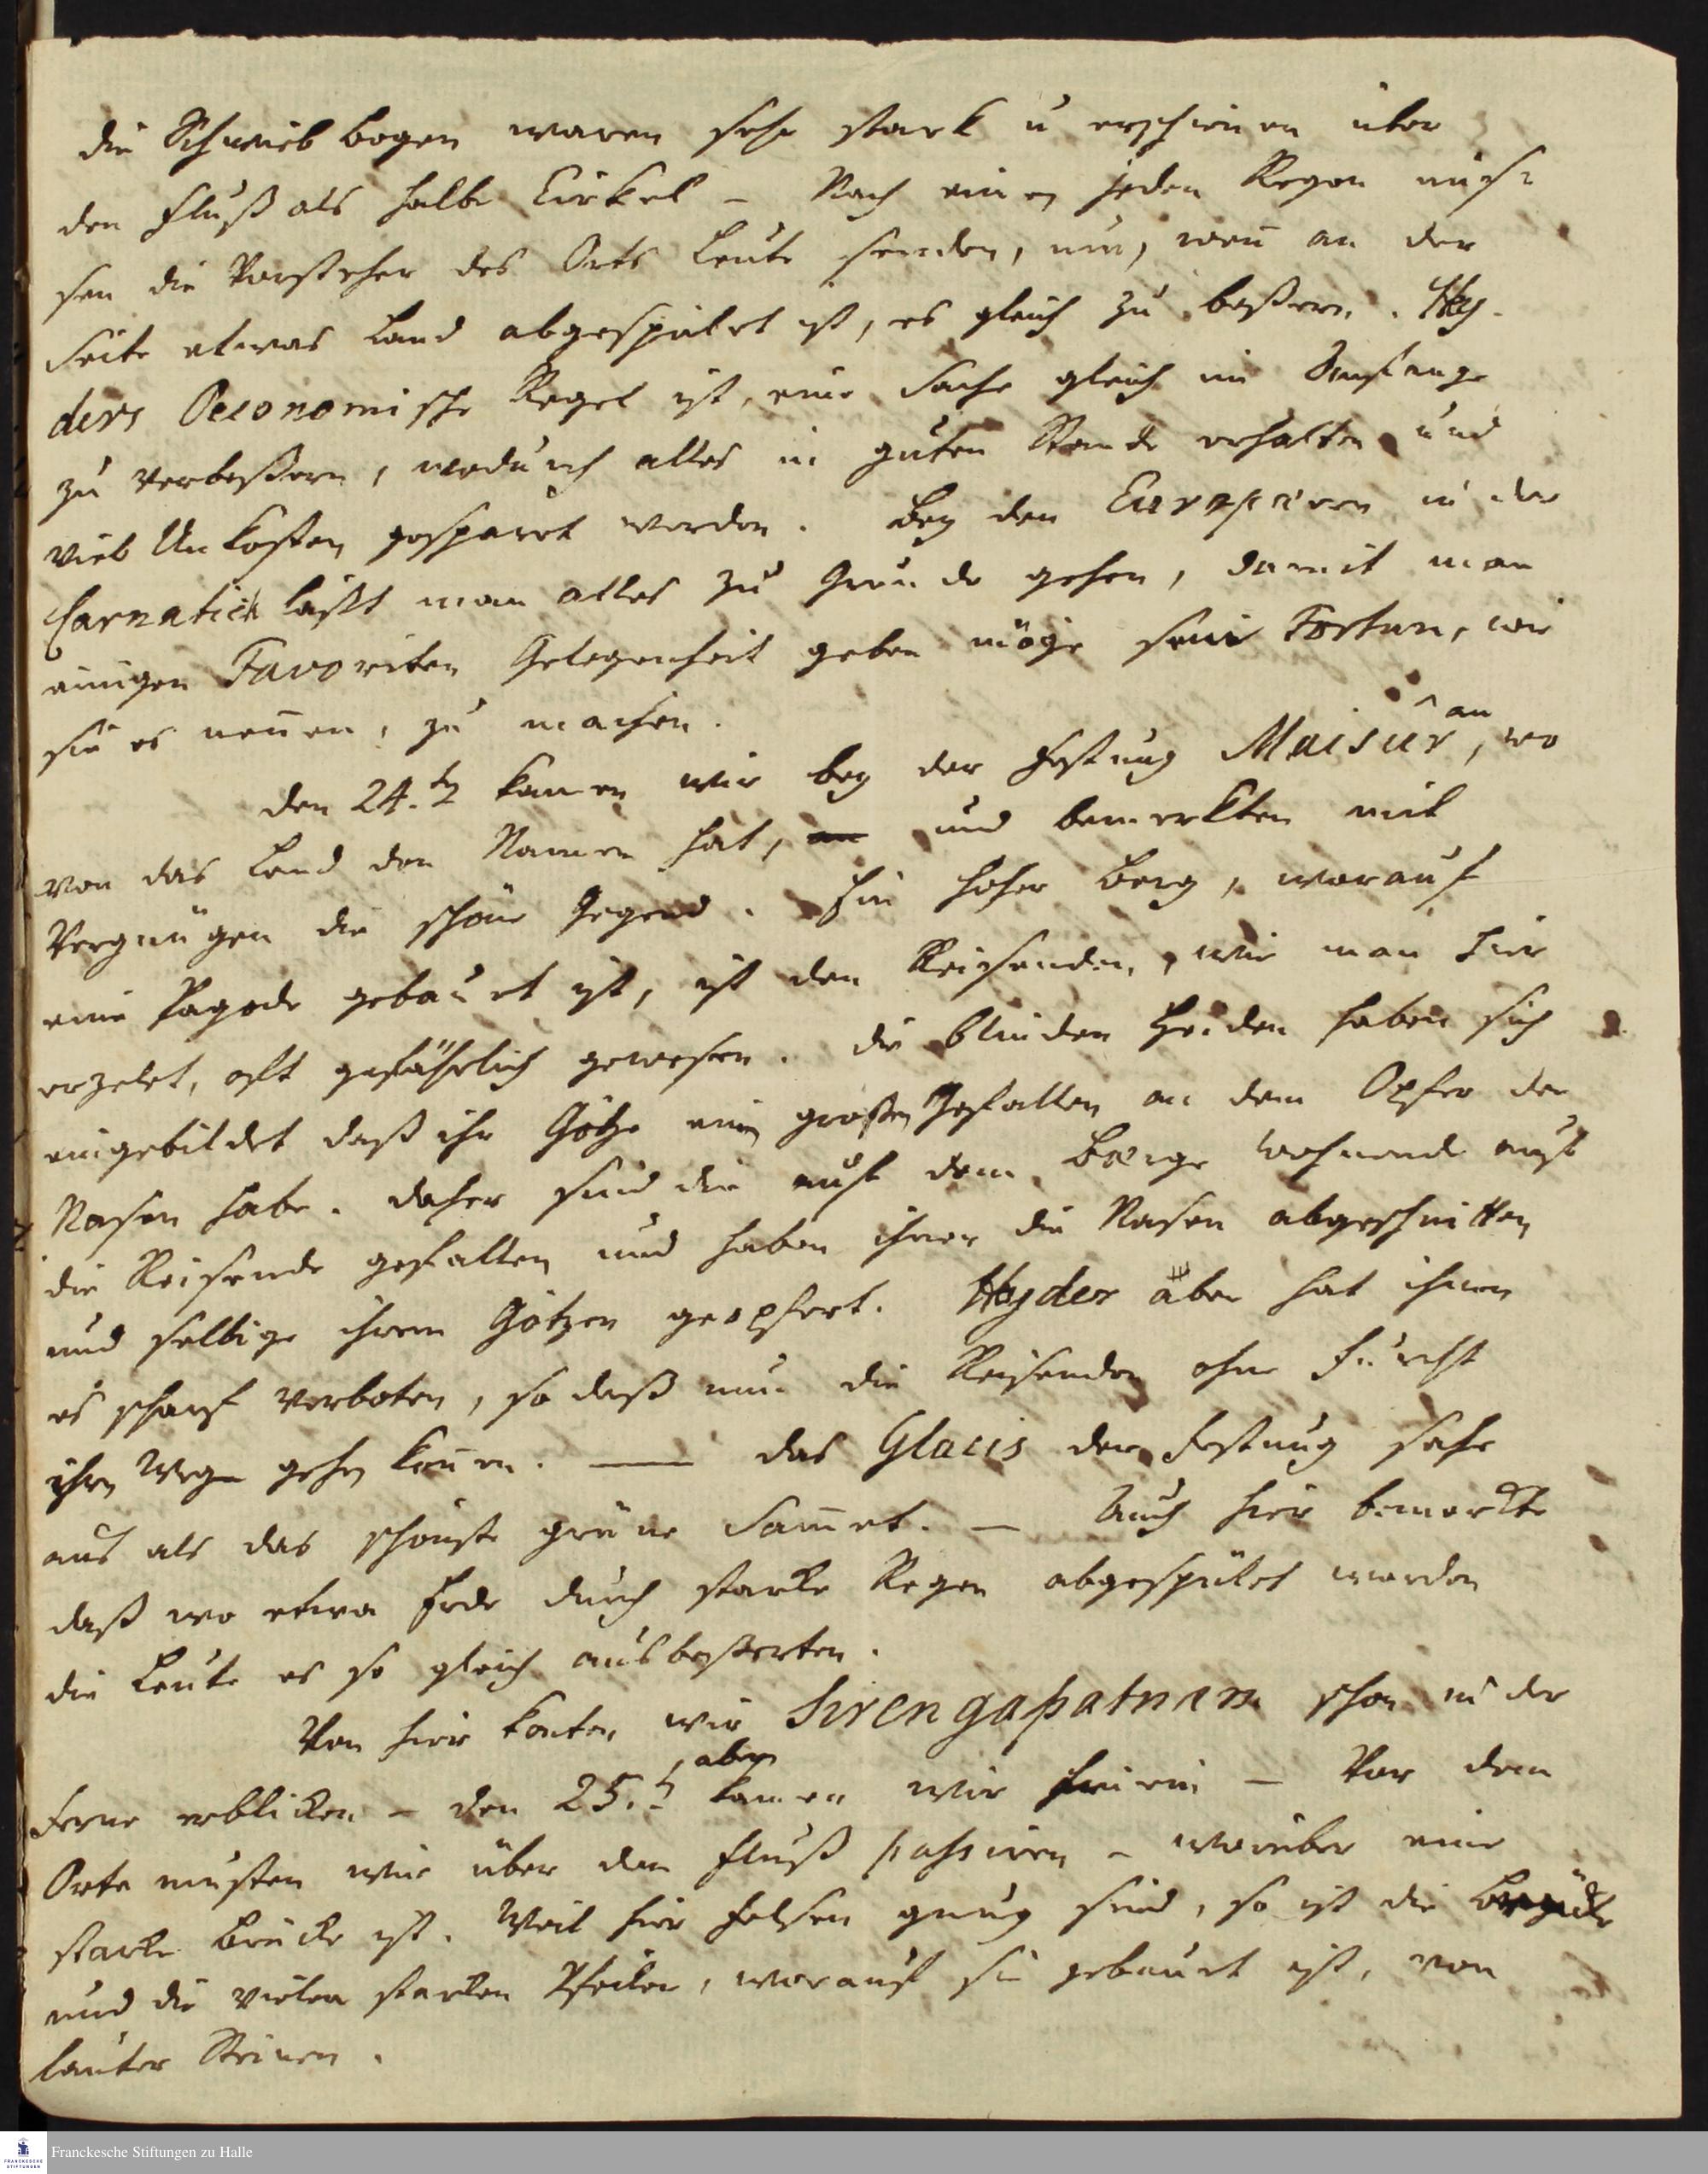 die Schwiebbogen waren sehr stark u erschienen über
den Fluß als halbe Cirkel – Nach einem jeden Regen müs-
sen die Vorsteher des Orts Leute senden, um, wen̄ an der
Seite etwas Land abgespület ist, es gleich zu beßern. Hy-
ders Oeconomische Regel ist, eine Sache gleich im Anfange
zu verbeßern, wodurch alles in guten Stande erhalten und
viele Unkosten gesparet werden. Bey den Europäern in der
Carnatick läßt man alles zu Grunde gehen, damit man
einigen Favoriten Gelegenheit geben möge sein Fortun, wie
sie es nen̄en, zu machen.
den 24.ten kamen wir bey der Festung Maisûr an, wo
von das Land den Namen hat, an und bemerkten mit
Vergnügen die schöne Gegend. Ein hoher Berg, worauf
eine Pagode gebauet ist, ist den Reisenden, wie man hier
erzelet, oft gefährlich gewesen. die blinden Heiden haben sich
eingebildet daß ihr Götze einen großen Gefallen an dem Opfer der
Nasen habe. daher sind die auf dem Berge wohnende auf
die Reisende gefallen und haben ihnen die Nasen abgeschnitten
und selbige ihrem Götzen geopfert. Hyder aber hat ihnen
es scharf verboten, so daß nun die Reisenden ohne Furcht
ihre Wege gehen kön̄en. — das Glacis der Festung sahe
aus als das schönste grüne Sam̄et. – Auch hier bemerkte
daß wo etwa Erde durch starke Regen abgespület worden
die Leute es so gleich ausbeßerten.
Von hier konten wir Sirengapatnam schon in der
Ferne erblicken – den 25.ten aber kamen wir hinein – Vor dem
Orte musten wir über den Fluß passiren – worüber eine
starke Brücke ist. Weil hier Felsen gnug sind, so ist die Brücke
und die vielen starken Pfeiler, worauf sie gebauet ist, von
lauter Steinen.
Franckesche Stiftungen zu Halle